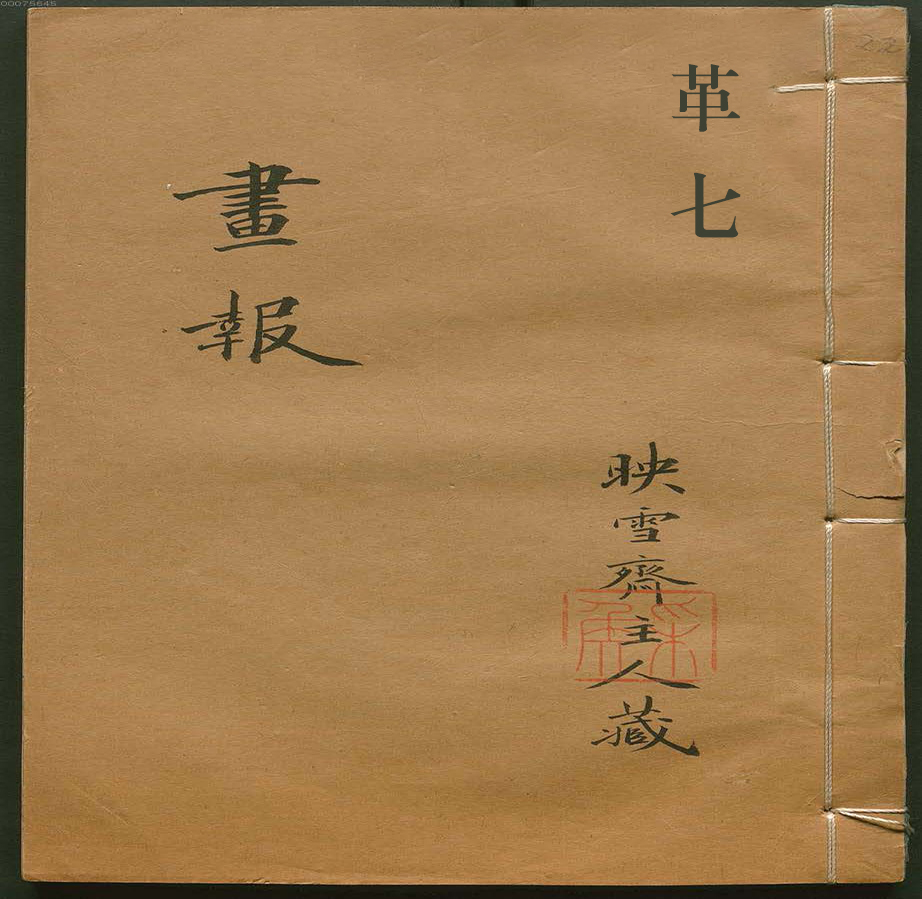 00075645
革七
映雪齋主人藏
畫報